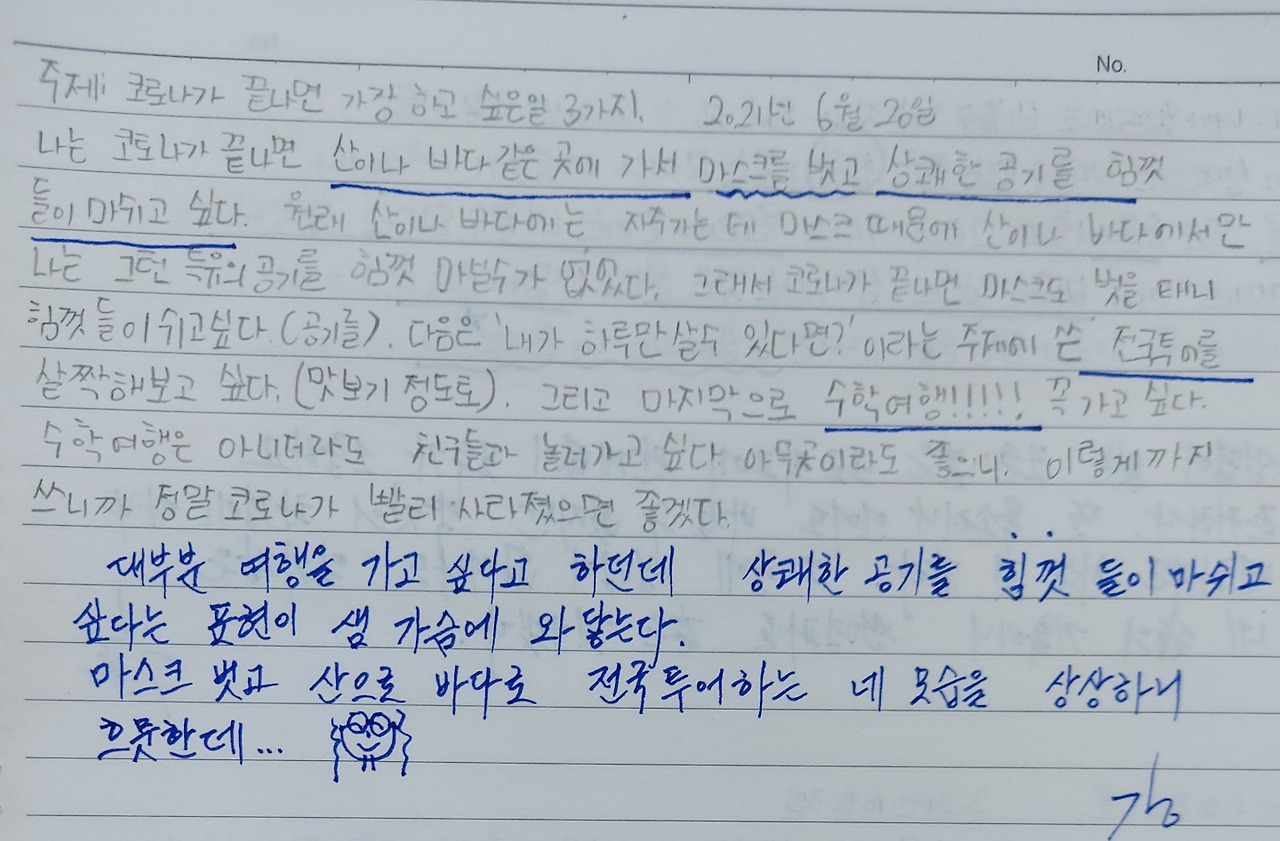 No.
주제: 코로나가 끝나면 가장 하고 싶은일 3가지. 2021년 6월 20일
나는 코로나가 끝나면 산이나 바다같은 곳에 가서 마스크를 벗고 상쾌한 공기를 힘껏
들이 마쉬고 싶다. 원래 산이나 바다에는 자주가는 데 마스크 때문에 산이나 바다에서만
나는 그런 특유의 공기를 힘껏 마실수가 없었다. 그래서 코로나가 끝나면 마스크도 벗을 테니
힘껏 들이 쉬고싶다.(공기를). 다음은 '내가 하루만 살수 있다면?' 이라는 주제에 쓴 전국투어를
살짝해보고 싶다.(맛보기 정도로). 그리고 마지막으로 수학여행!!!!! 꼭 가고 싶다.
수학여행은 아니더라도 친구들과 놀러가고 싶다. 아무곳이라도 좋으니. 이렇게까지
쓰니까 정말 코로나가 빨리 사라졌으면 좋겠다.
대부분 여행을 가고 싶다고 하던데 상쾌한 공기를 힘껏 들이마쉬고
싶다는 표현이 샘 가슴에 와닿는다.
마스크 벗고 산으로 바다로 전국투어하는 네 모습을 상상하니
흐뭇한데...